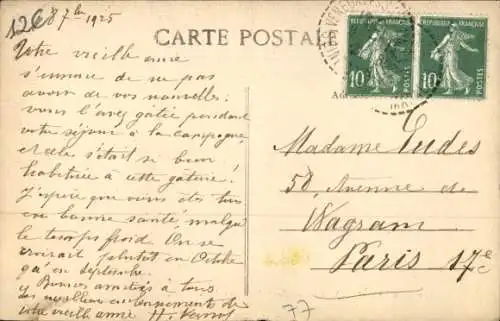 12€
8 7bre 1925
CARTE POSTALE
REPUBLIQUE FRANÇAISE
10
POSTES
REPUBLIQUE FRANÇAISE
10
POSTES
Votre vieille amie
s'ennuie de ne pas
avoir de vos nouvelles:
vous l'avez gâtée pendant
votre séjour à la campagne,
et elle s'était si bien
habituée à cette gâterie!
J'espère que vous êtes tous
en bonne santé, malgré
le temps froid. On se
croirait plutôt en Octobre
qu'en septembre.
Bonnes amitiés à tous
et les meilleurs de
votre vieille amie H.
Madame Eudes
58, Avenue de
Wagram
Paris 17e
77